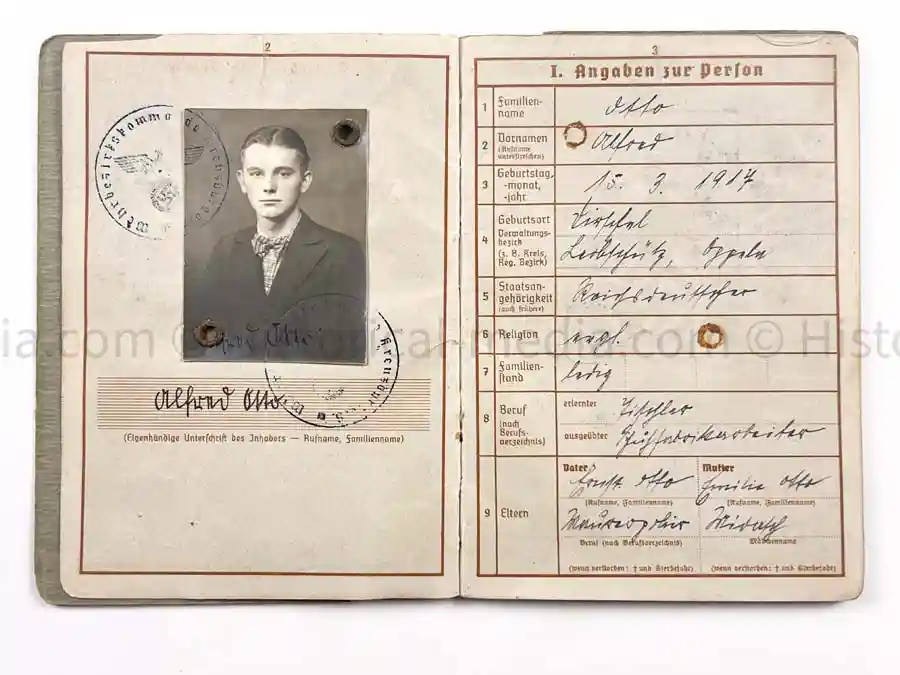 2
Wehrbezirkskommando Kreuzburg
Alfred Otto
Alfred Otto
(Eigenhändige Unterschrift des Inhabers — Rufname, Familienname)
3
I. Angaben zur Person
1 Familien-
name
Otto
2 Vornamen
(Rufname
unterstreichen)
Alfred
3 Geburtstag,
-monat,
-jahr
15. 3. 1917
4 Geburtsort
Verwaltungs-
bezirk
(z. B. Kreis,
Reg. Bezirk)
Dirschel
Leobschütz, Oppeln
5 Staatsan-
gehörigkeit
(auch frühere)
Reichsdeutscher
6 Religion
evgl.
7 Familien-
stand
ledig
8 Beruf
(nach
Berufs-
verzeichnis)
erlernter
Tischler
ausgeübter
Schuhfabrikarbeiter
9 Eltern
Vater Mutter
Ernst Otto Emilie Otto
(Rufname, Familienname) (Rufname, Familienname)
Beruf (nach Berufsverzeichnis) Mädchenname
(wenn verstorben: † und Sterbejahr) (wenn verstorben: † und Sterbejahr)
ia.com © Historical-media.com © Histo